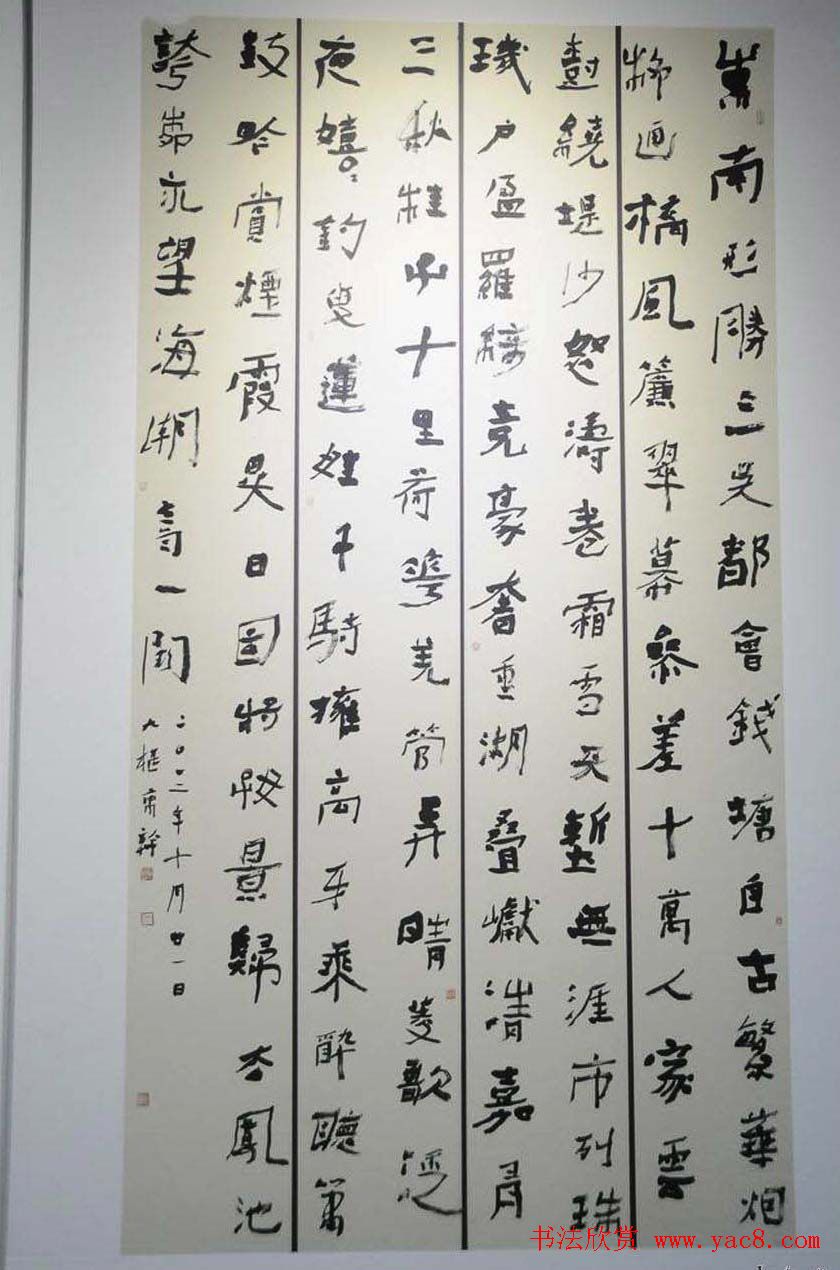 東南形勝三吳都會錢塘自古繁華烟
柳画橋風簾翠幕參差十萬人家雲
樹繞堤沙怒濤卷霜雪天塹無涯市列珠
璣户盈羅綺竞豪奢重湖疊巘清嘉有
三秋桂子十里荷花羌管弄晴菱歌泛
夜嬉〻釣叟蓮娃千騎擁高牙乘醉聽簫
鼓吟賞煙霞異日圖將好景歸去鳳池
誇柳永望海潮詞一闋
二〇〇二年十月廿一日
书法欣赏 www.yac8.com